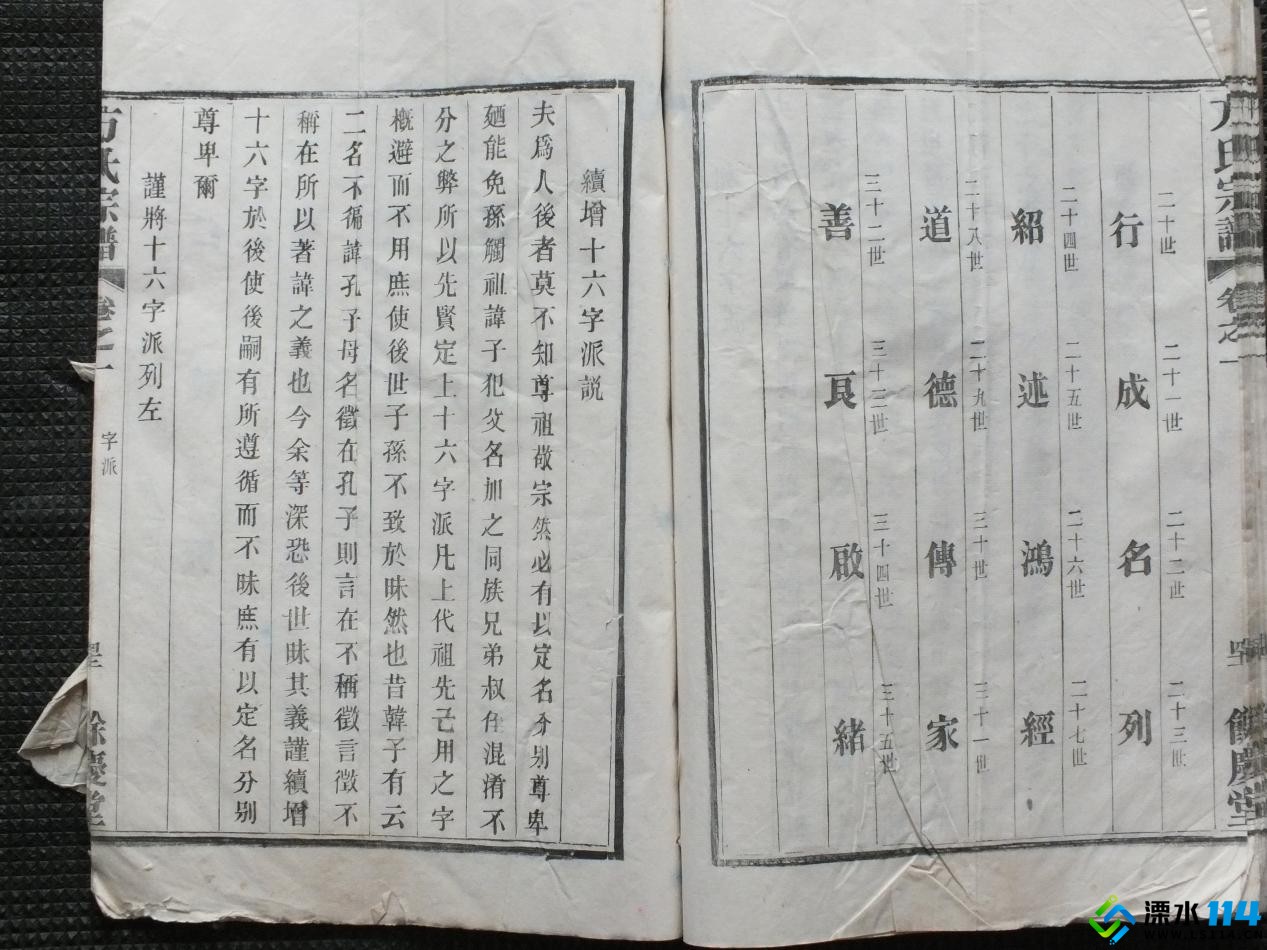 方氏宗譜
卷之一
餘慶堂
二十世 二十一世 二十二世 二十三世
行成名列
二十四世 二十五世 二十六世 二十七世
紹述鴻經
二十八世 二十九世 三十世 三十一世
道德傳家
三十二世 三十三世 三十四世 三十五世
善良啟緒
續增十六字派説
夫爲人後者莫不知尊祖敬宗然必有以定名分别尊卑
廼能免孫觸祖諱子犯父名加之同族兄弟叔侄混淆不
分之弊所以先賢定上十六字派凡上代祖先已用之字
概避而不用庶使後世子孫不致於昧然也昔韓子有云
二名不徧諱孔子母名徵在孔子則言在不稱徵言徵不
稱在所以著諱之義也今余等深恐後世昧其義謹續增
十六字於後使後嗣有所遵循而不昧庶有以定名分别
尊卑爾
謹將十六字派列左
方氏宗譜
卷之一
字派
餘慶堂
溧水114